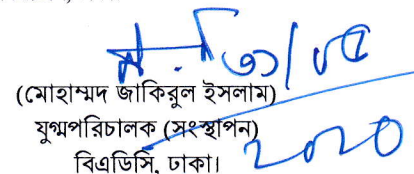 (মোহাম্মদ জাকিরুল ইসলাম)
যুগ্মপরিচালক (সংস্থাপন)
বিএডিসি, ঢাকা।
2020